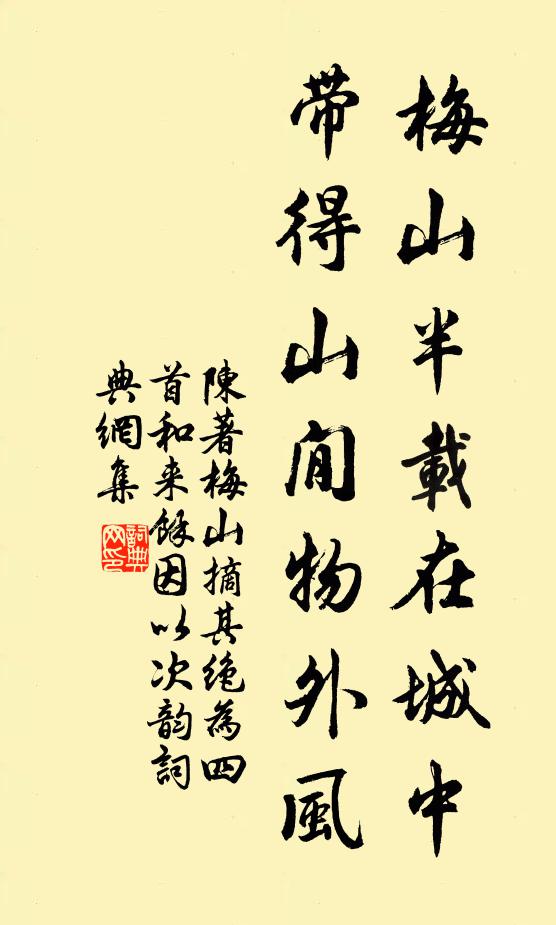 梅山半載在城中
带得山間物外風
陳著梅山摘其绝為四
首和来餘因以次韵詞
典網集
詞典網印